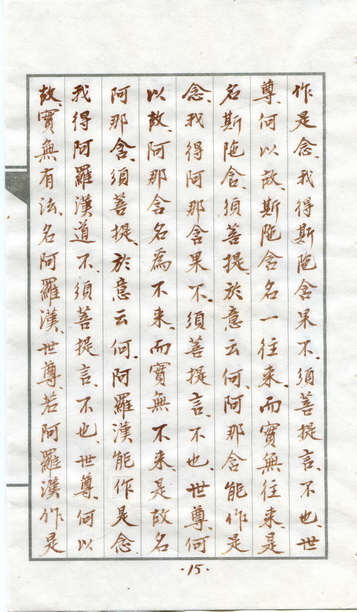 作是念、我得斯陀含果不、須菩提言、不也、世
尊、何以故、斯陀含名一往来、而實無往来、是
名斯陀含、須菩提、於意云何、阿那含能作是
念、我得阿那含果不、須菩提言、不也、世尊、何
以故、阿那含名為不来、而實無不来、是故名
阿那含、須菩提、於意云何、阿羅漢能作是念、
我得阿羅漢道不、須菩提言、不也、世尊、何以
故、實無有法、名阿羅漢、世尊、若阿羅漢作是
·15·